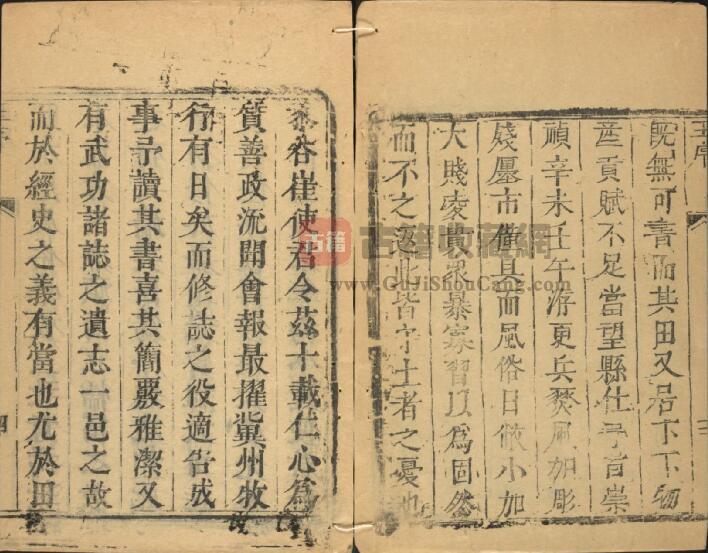 王序
三
既無可書而其田又居下下物
產貢賦不足當望縣崇
禎辛未壬午更兵燹加彫
殘廛市備具而風俗日小加
大賤凌貴眾暴寡習以爲固然
而不之返此皆守土者之憂也
谷崔使君令茲十載仁心爲
質善政流聞會報最擢冀州牧
行有日矣而修誌之役適告成
事予讀其書喜其簡覈雅潔又
有武功諸誌之遺志一邑之故
而於經史之義有當也尤於田
四
古籍
古籍收藏網
www.GuJiShouCang.com